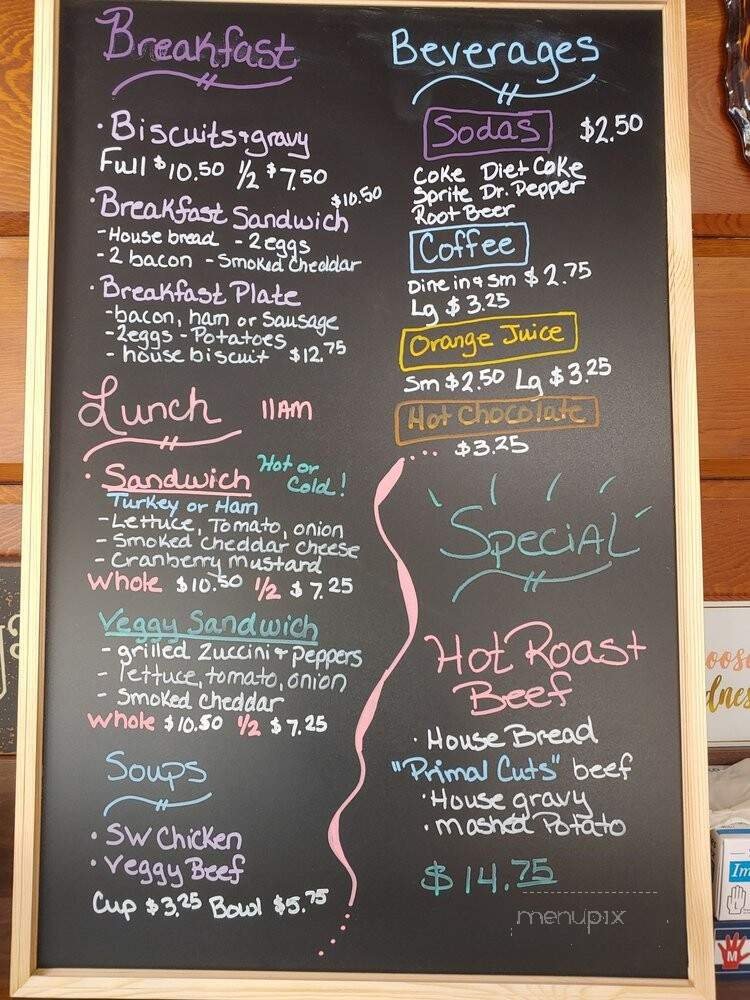 Breakfast
• Biscuits + gravy
Full $10.50 1/2 $7.50
$10.50
• Breakfast Sandwich
- House bread - 2 eggs
- 2 bacon - Smoked Cheddar
• Breakfast Plate
- bacon, ham or Sausage
- 2eggs - Potatoes
- house biscuit $12.75
Lunch 11AM
• Sandwich Hot or Cold!
Turkey or Ham
- Lettuce, Tomato, onion
- Smoked Cheddar cheese
- Cranberry Mustard
Whole $10.50 1/2 $7.25
Veggy Sandwich
- grilled Zuccini + Peppers
- lettuce, tomato, onion
- Smoked Cheddar
Whole $10.50 1/2 $7.25
Soups
• SW Chicken
• Veggy Beef
Cup $3.25 Bowl $5.75
Beverages
Sodas $2.50
Coke Diet Coke
Sprite Dr. Pepper
Root Beer
Coffee
Dine in + Sm $2.75
Lg $3.25
Orange Juice
Sm $2.50 Lg $3.25
Hot Chocolate
$3.25
Special
Hot Roast
Beef
• House Bread
"Primal Cuts" beef
• House gravy
• Mashed Potato
$14.75
menupix
M